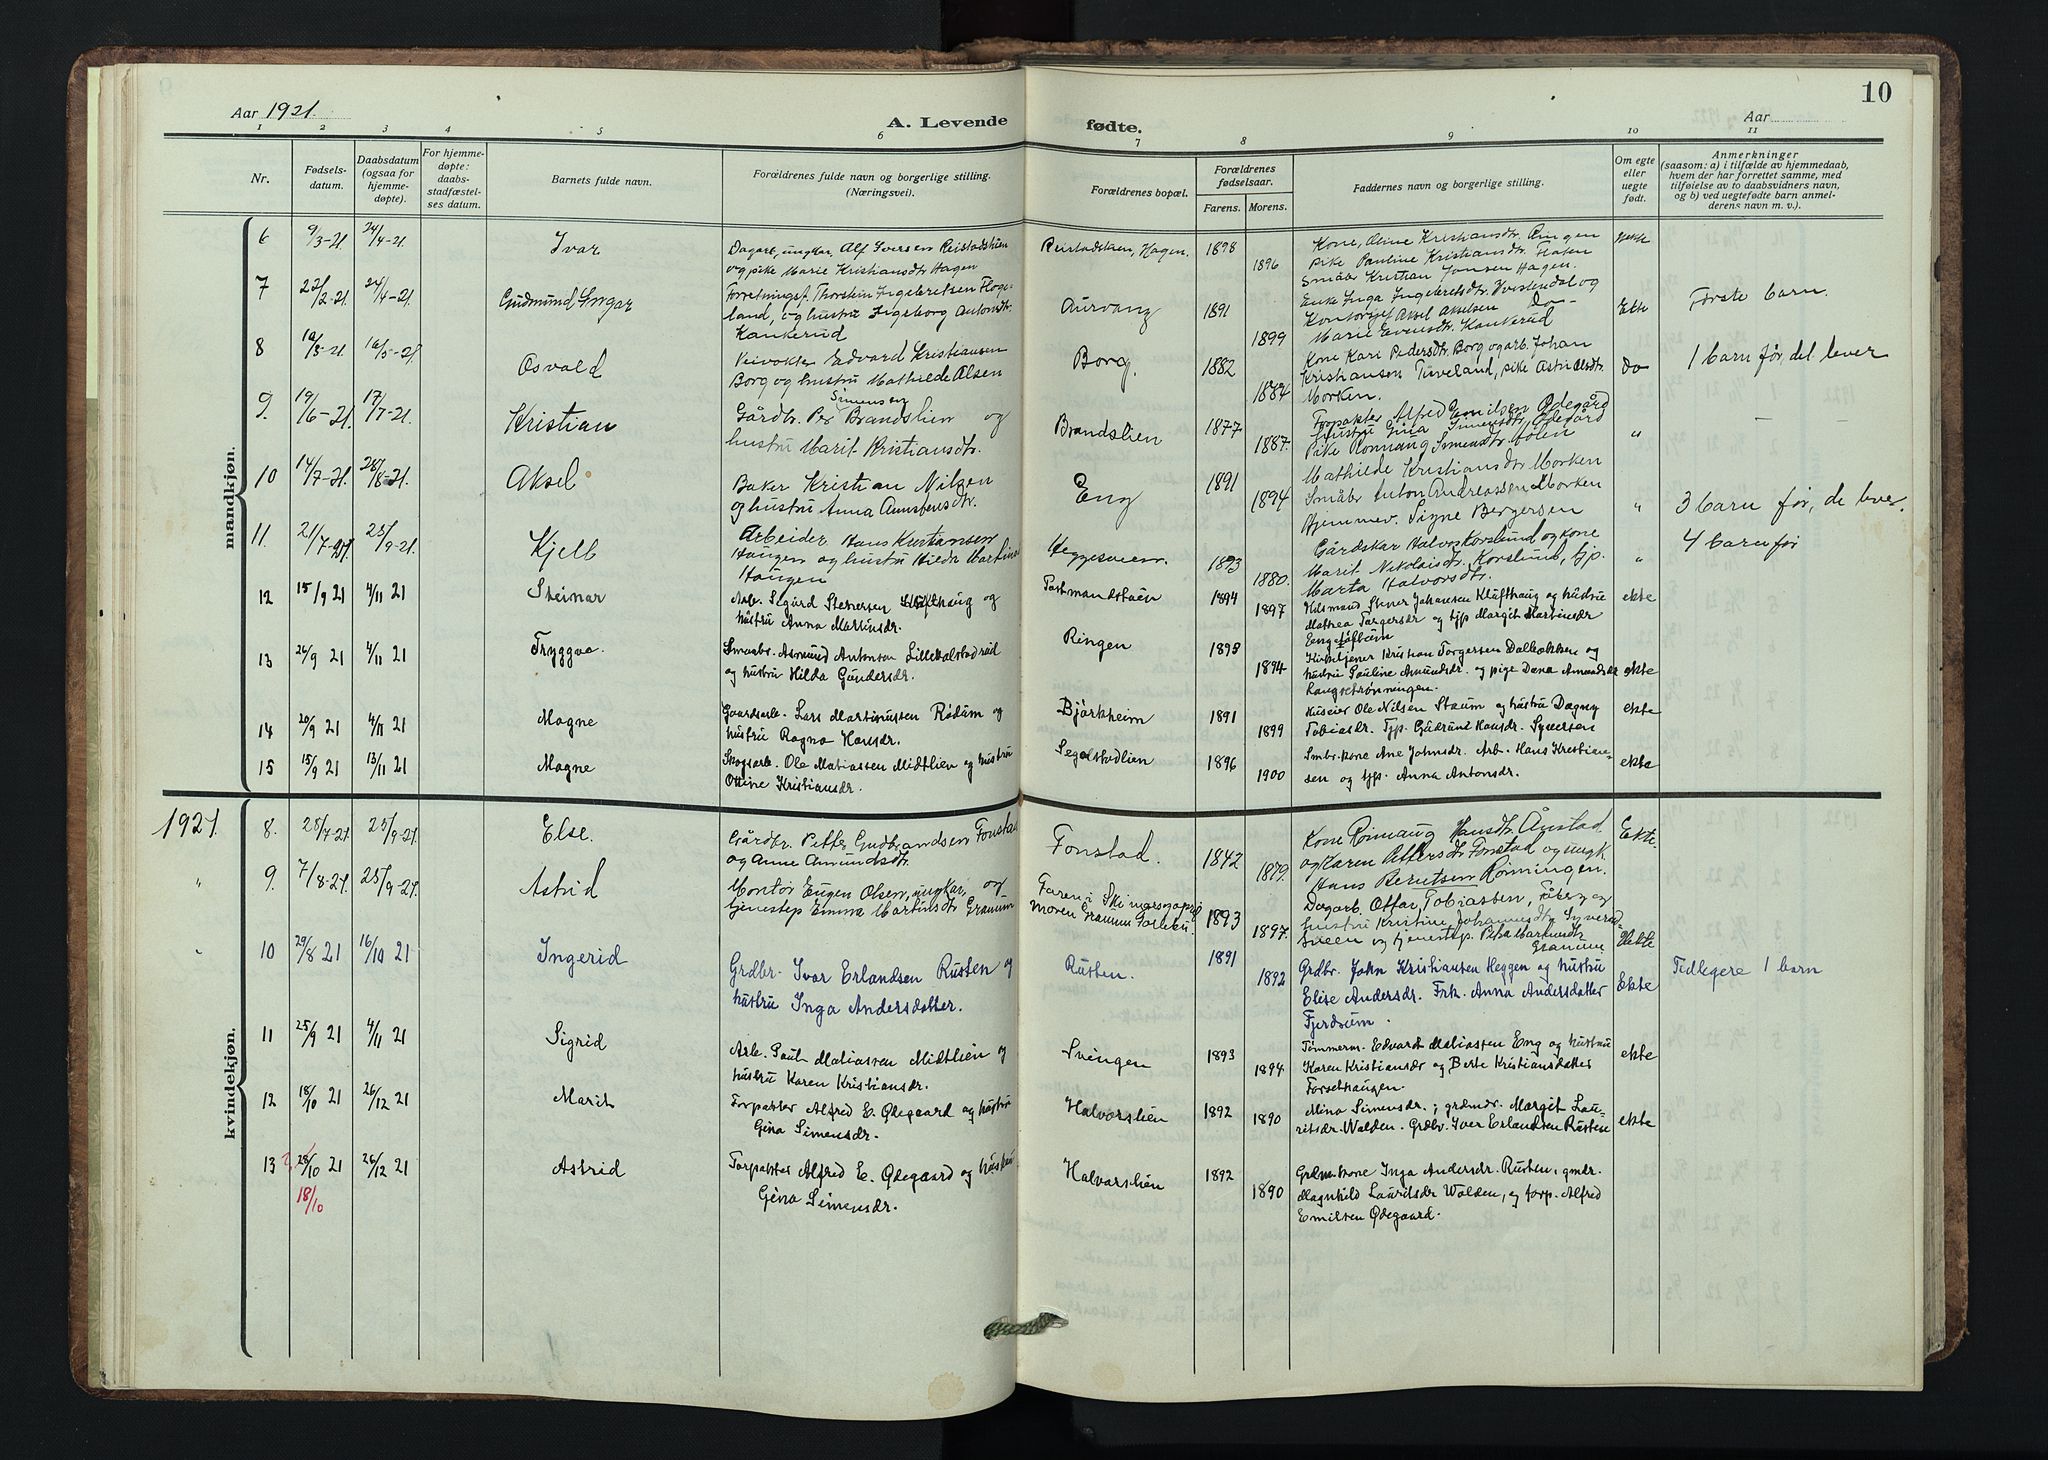 Aar 1921.
A. Levende fødte.
Aar
10
1 2 3 4 5 6 7 8 9 10 11
Nr.
Fødsels-
datum.
Daabsdatum
(ogsaa for
hjemme-
døpte).
For hjemme-
døpte:
daabs-
stadfæstel-
ses datum.
Barnets fulde navn.
Forældrenes fulde navn og borgerlige stilling.
(Næringsvei).
Forældrenes bopæl.
Forældrenes
fødselsaar.
Farens. Morens.
Faddernes navn og borgerlige stilling.
Om egte
eller
uegte
født.
Anmerkninger
(saasom: a) i tilfælde av hjemmedaab,
hvem der har forrettet samme, med
tilføielse av to daabsvidners navn,
og b) ved uegtefødte barn anmel-
derens navn m. v.).
mandkjøn.
6 9/3-21 24/4-21. Ivar
Dagarb, ungkar, Alf Iversen Reistadshøen
og pike Marie Kristiansdtr Hagen
Reistadsken, Hagen. 1898 1896
Kone, Oline Kristiansdtr. Ringen
pike Pauline Kristiansdtr.
Småbr Kristian Jonsen Hagen.
Uekte
7 22/2-21. 24/4-21. Gudmund Ingar
Forretningsf. Thorstein Ingebretsen Hoge-
land, og hustru Ingeborg Antonsdtr.
Kankerud
Aurvang 1891 1899
Enke Inga Ingebretsdtr. og
Kontorsjef Aksel Akselsen Do-
Marie Evensdtr. Kankerud
Ekte Første barn.
8 10/3-21. 16/5-21. Osvald
Veivokter Edvard Kristiansen
Borg og hustru Mathilde Olsen
Borg. 1882 1884
Kone Kari Pedersdtr. Borg og arb. Johan
Kristiansen Tuveland, pike Astri Olsdtr
Morken.
Do 1 barn før, det lever
9. 19/6-21. 17/7-21. Kristian
Simensen
Gårdbr. Per Brandslien og
hustru Marit Kristiansdtr.
Brandslien 1877 1887.
Forpakter Alfred Emilsen Ødegård
hustru Gina Simensdtr. Ødegård
Pike Ronnaug Simensdtr. Molen
" -
10 14/7-21. 28/8-21. Aksel
Baker Kristian Nilsen
og hustru Anna Arnstensdtr.
Eng 1891 1894
Mathilde Kristiansdtr Morken
Småbr Anton Andreassen Morken
Hjemmev. Signe Bergersen
" 3 barn før, de lever.
11. 21/7-21. 25/9-21. Kjell
Arbeider Hans Kristiansen
Haugen og hustru Hilda Martina
Haugen
Heggesveen. 1893 1880.
Gårdskar Halvor Korslund og kone
Marit Nikolaisdtr. Korslund, tjp.
Marta Halvorsdtr.
" 4 barn før
12 15/9 21 4/11 21 Steinar
Arb. Sigurd Stenersen Klufthaug og
hustru Anna Martinsdr.
Postmandstuen 1894 1897
Husmand Stener Johansen Klufthaug og hustru
Mathea Torgersdr og tjp Margit Martinsdr
Engetøfhein
ekte
13 26/9 21 4/11 21 Tryggve.
Smaabr. Asmund Antonsen Lillekalstadrud
og hustru Hilda Gundersdr.
Ringen 1898 1894
Kirketjener Kristian Torgersen Dalbakken og
hustru Pauline Amundsdr. og pige Dana Amundsdr
Kongsthrønningen.
ekte
14 20/9 21 4/11 21 Magne
Gaardsarb. Lars Martinussen Rødum og
hustru Ragna Hansdr.
Bjørkheim 1891 1899
Huseier Ole Nilsen Staum og hustru Dagny
Tobiasdr. Tjp. Gudrund Hansdr. Syversen
ekte
15 15/9 21 13/11 21 Magne
Skogsarb. Ole Matiassen Midtlien og hustru
Ottine Kristiansdr.
Segalstadlien 1896 1900
Smbr.kone Ane Johnsdr. Arb. Hans Kristian-
sen og tjp. Anna Antonsdr.
ekte
kvindekjøn.
1921. 8. 28/7-21. 25/9-21. Else.
Gårdbr. Petter Gudbrandsen Fonstad
og Anne Amundsdtr.
Fonstad. 1842 1879.
Kone Rønnaug Hansdtr. Ånstad.
og Karen Pettersdtr Fonstad og ungk.
Hans Berntsen Rønningen.
Ekte.
" 9. 7/8-21. 25/9-21. Astrid
Montør Eugen Olsen, ungkar, og
tjenestep Emma Martinsdtr Granum
Faren i Ski
Moren Granum 1893 1897.
Dagarb. Ottar Tobiassen, Fåberg og
hustru Kristine Johannesdtr Syverud-
sveen og tjenestp. Petra Martinsdtr.
Granum
Uekte
" 10 29/8 21 16/10 21 Ingerid
Grdbr. Ivar Erlandsen Rusten og
hustru Inga Andersdatter.
Rusten. 1891 1892
Grdbr. John Kristiansen Heggen og hustru
Elise Andersdr. Frk. Anna Andersdatter
Fjerdsum.
Ekte Tidligere 1 barn
11 25/9 21 4/11 21 Sigrid
Arb. Paul Matiassen Midtlien og
hustru Karen Kristiansdr.
Svingen 1893 1894
Tømmerm. Edvard Matiassen Eng og hustru
Karen Kristiansdr og Berte Kristiansdatter
Forsethaugen.
ekte
12 18/10 21 26/12 21 Marit
Forpakter Alfred E. Ødegaard og hustru
Gina Simensdr.
Halvorslien 1892 1890
Mina Simensdr.; grdmdr. Margit Lau-
ritsdr. Walden. Grdbr. Iver Erlandsen Rusten
ekte
13 28/10 21 26/12 21 Astrid
18/10
Forpakter Alfred E. Ødegaard og hustru
Gina Simensdr.
Halvorslien 1892 1890
Grdm.kone Inga Andersdr. Rusten, gmdr.
Magnhild Lauritsdr Walden, og forp. Alfred
Emilsen Ødegaard.